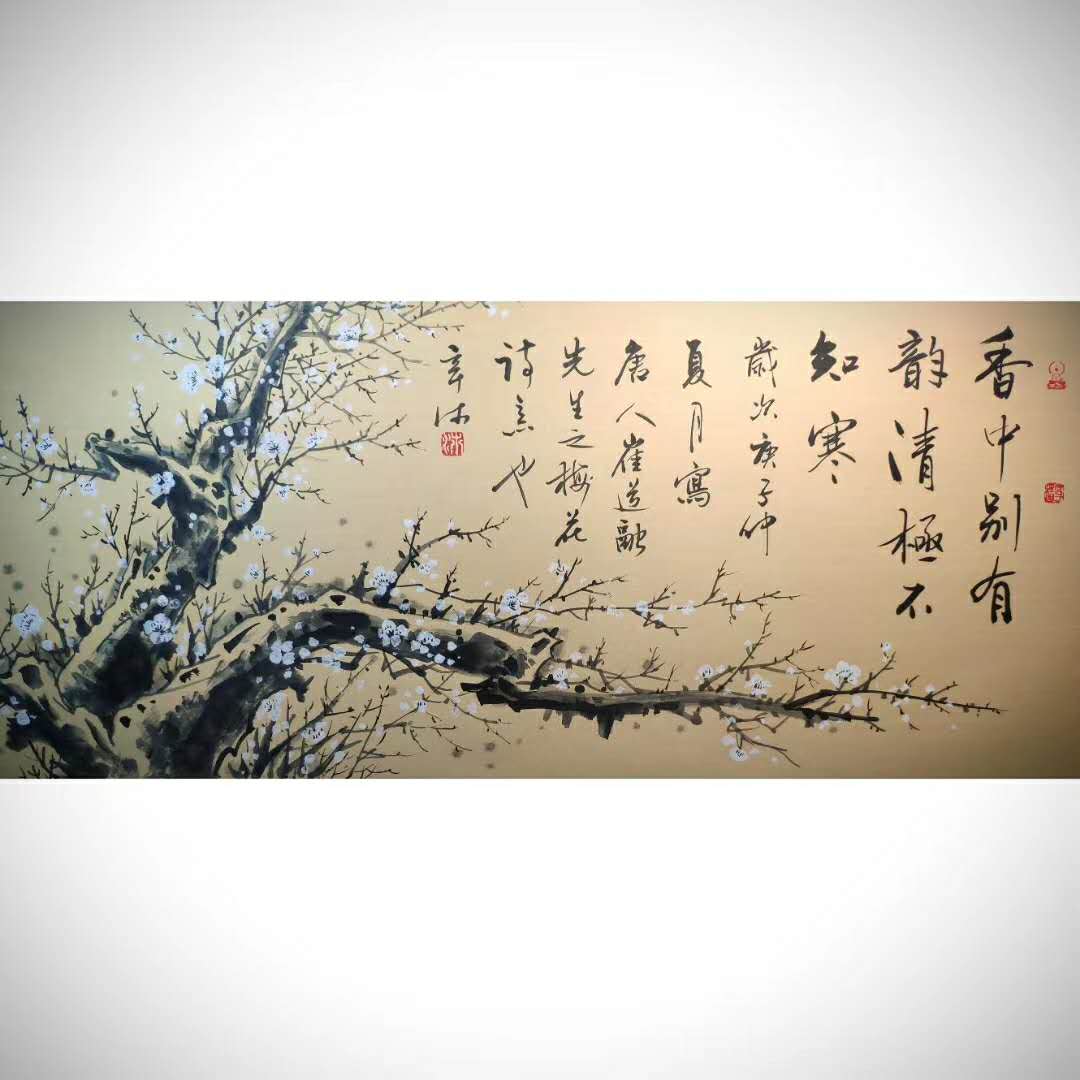 香中别有
韵清極不
知寒
歲次庚子仲
夏月寫
唐人崔道融
先生之梅花
詩意也